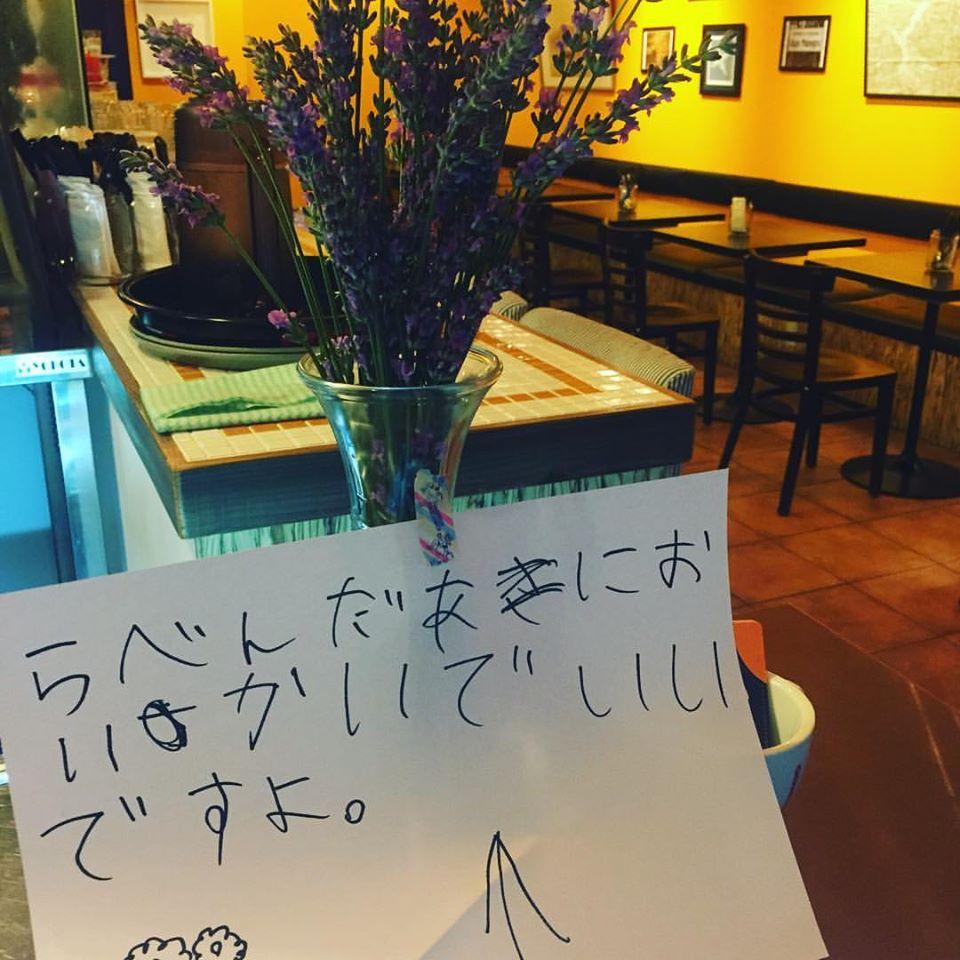 らべんだあにお
いかいでいい
ですよ。